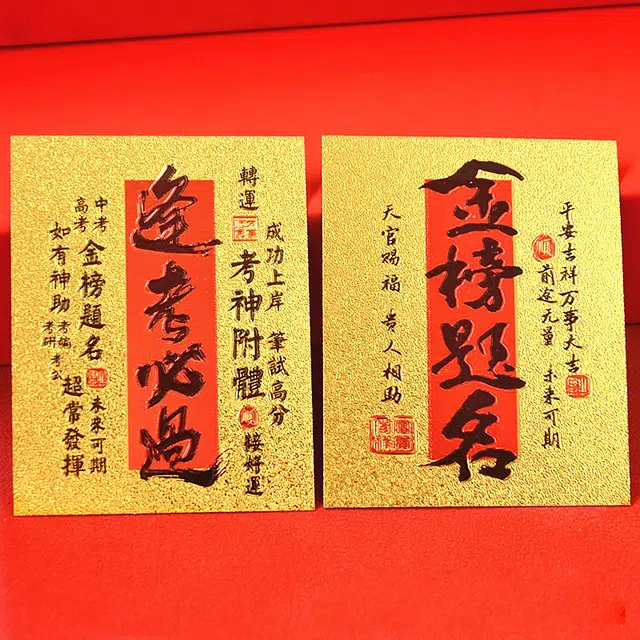 轉運
成功上岸 筆試高分
考神附體
順 接好運
逢考必過
中考
高考
金榜題名
未來可期
如有神助
考編
考公
考研
超常發揮
平安吉祥万事大吉
順
前途元量 未来可期
金榜题名
天官赐福 贵人相助